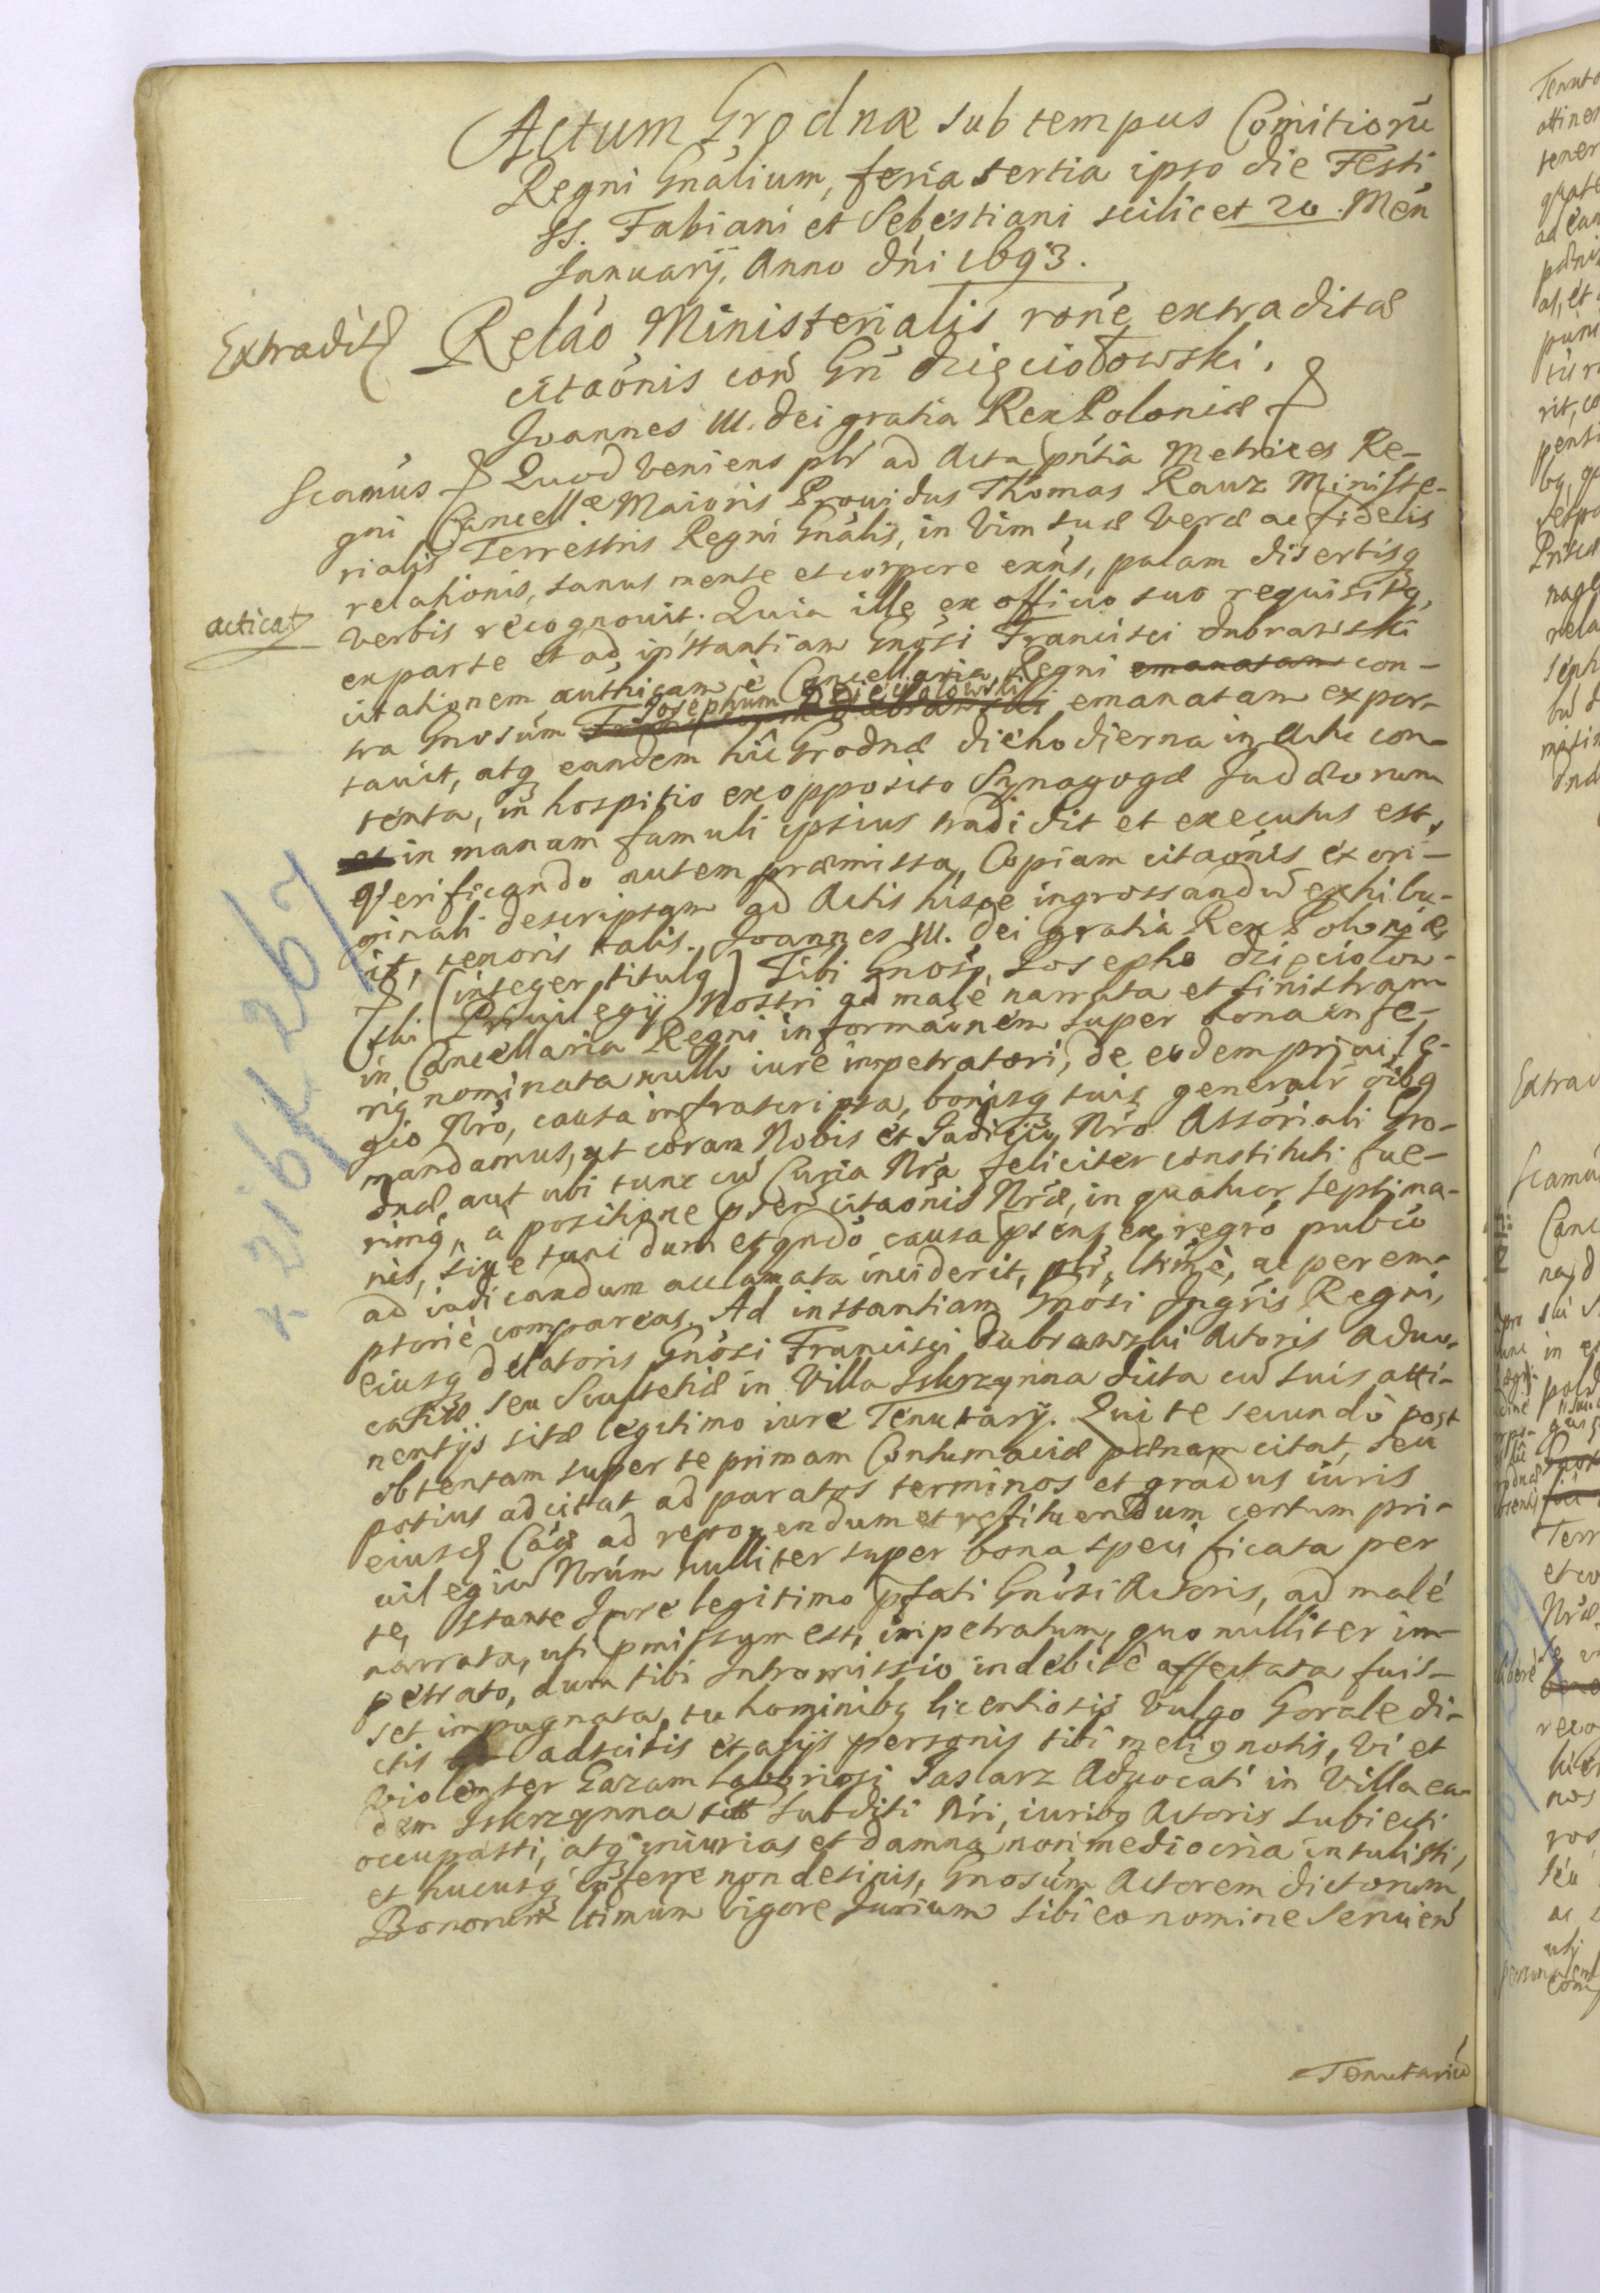 Actum Grodnæ sub tempus Comitiorũ
Regni Gnâlium, feria tertia ipso die Festi
SS. Fabiani et Sebestiani scilicet 20. Men
Januarij. Anno dńi 1693.
Extradit
Relâo Ministerialis rone extraditæ
citaonis con Gn Dzięciołowski.
Joannes III. dei gratia Rex Poloniæ
Scamús Quod veniens plr ad Acta pntia Metrices Re-
gni Cancellæ Maioris Prouidus Thomas Rauz Ministe-
rialis Terrestris Regni Gnâlis, in Vim suæ Veræ ac fidelis
relationis, sanus mente et corpore exns, palam disertisq
acticat
Verbis recognouit. Quia ille ex officio suo requisitq,
ex parte et ad instantiam Gnosi Francisci Dubrawski
citationem authicam è Cancellaria Regni emanatam con-
Josephum Dzięciołowski
tra Gnosúm emanatam expor-
tauit, atq eandem hîc Grodnæ die hodierna in Actu con-
tenta, in hospitio ex opposito Synagogæ Judæorum
et in manam famuli ipsius tradidit et executus est,
Verificando autem præmissa, Copiam citaonis ex ori-
ginali descriptam ad Actis hisce ingrossandũ exhibu-
it, tenoris talis. Joannes III. dei gratia Rex Poloniæ
(integer titulq) Tibi Gnoso Josepho Dzięciołow-
ski Priuilegij Nostri ad malè narrata et sinistram
in Cancellaria Regni informaonem super bona infe-
riq nominata nullo iure impetratori, de eodem priuile-
gio Nró, causa infrascripta, bonisq tuis generalr oibq
mandamus, ut coram Nobis et Judicio Nró Assoriali Gro-
dnæ, aut ubi tunc cũ Curia Nrâ feliciter constituti fue-
rimq, a positione citaonis Nræ, in quatuor septima-
nis, siue tunc dum et qndo causa psens ex regro publco
ad iudicandum acclamata inciderit, plr, ltimè, ac perem-
ptoriè compareas. Ad instantiam Gnosi Ingris Regni,
eiusq delatoris Gnosi Francisci Dubrawski Actoris Aduo-
catiæ seu Scultetiæ in Villa Iskrzynna dicta cũ suis atti-
nentijs sitæ legitimo iure Tenutarij. Qui te secundò post
obtentam super te primam Contumaciæ pœnam citat, seu
potius adcitat ad paratos terminos et gradus iuris
eiusd Câæ ad reponendum et restituendum certum pri-
uilegiũ Nrúm nulliter super bona specificata per
te, stante Jure legitimo pfati Gnosi Actoris, ad malè
narrata, uti pmissum est, impetratum, quo nulliter im-
petrato, dum tibi Intromissio indebitè affectata fuis-
set impugnata, tu hominibq licentiosis Vulgo Gorale di-
ctis adscitis et alijs personis tibi meliq notis, Vi et
Violenter Gazam Laboriosi Jaslarz Aduocati in Villa ea-
dem Iskrzynna subditi Nri, iuribq Actoris subiecti
occupasti, atq iniurias et damna non mediocria intulisti,
et hucusq inferre non desinis, Gnosúm Actorem dictorum
Bonorum ltimum vigore Jurium sibi eo nomine seruien
Tenutariũ